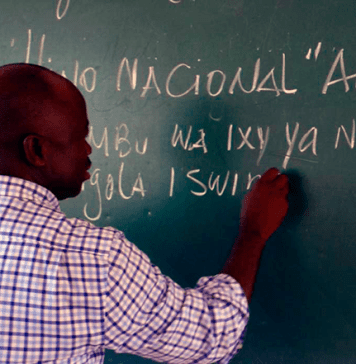 "Hino NACIONAL" A
MBU WA IXY YA N
gola ISWIN